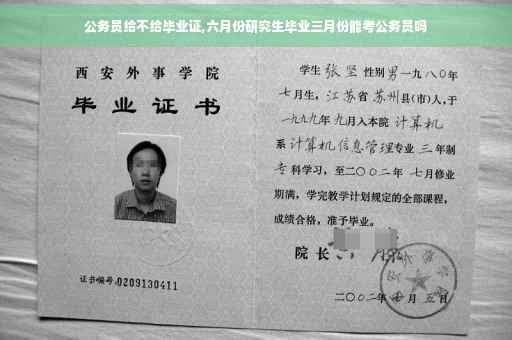 公务员给不给毕业证,六月份研究生毕业三月份能考公务员吗
西安外事学院
毕业证书
证书编号:0209130411
学生 张坚 性别 男 一九八〇年
七月生, 江苏省 苏州县(市)人,于
一九九九年 九月入本院 计算机
系 计算机信息管理专业 三 年制
专 科学习, 至二〇〇二年 七月修业
期满, 学完教学计划规定的全部课程,
成绩合格, 准予毕业。
院长
二〇〇二年 月 五日